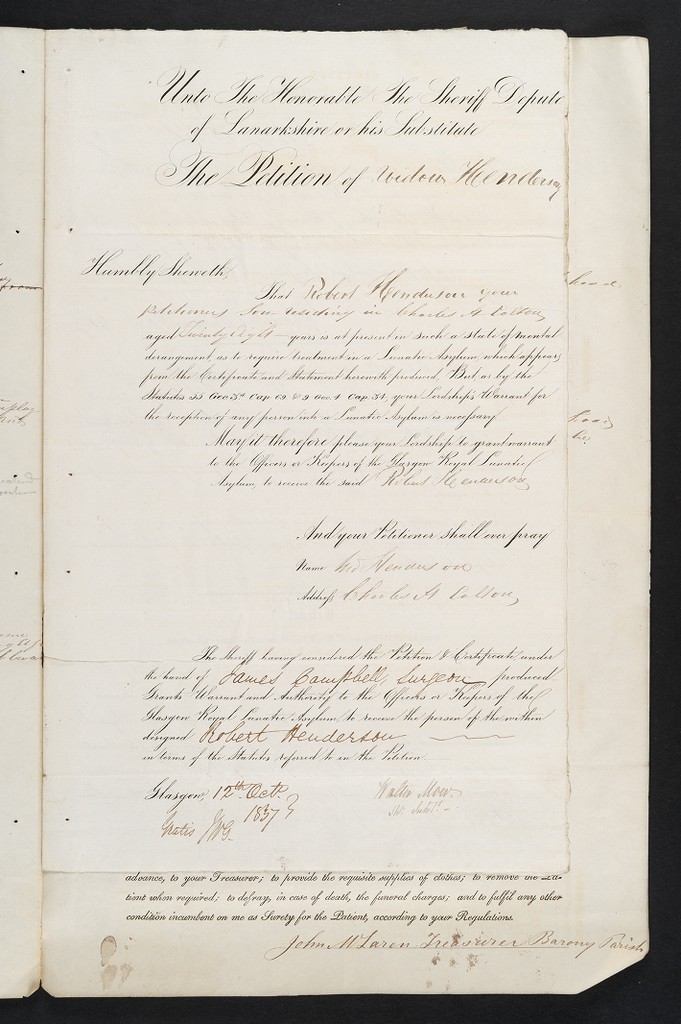 Unto The Honorable The Sheriff Depute
of Lanarkshire or his Substitute
The Petition of Widow Henderson
Humbly Sheweth,
That Robert Henderson your
Petitioners Son residing in Charles St Calton
aged Twenty Eight years is at present in such a state of mental
derangement, as to require treatment in a Lunatic Asylum, which appears
from the Certificate and Statement herewith produced. But as by the
Statutes 55 Geo. 3d Cap. 69 & 9 Geo. 4 Cap. 34, your Lordship's Warrant for
the reception of any person into a Lunatic Asylum is necessary
May it therefore please your Lordship to grant warrant
to the Officers or Keepers of the Glasgow Royal Lunatic
Asylum, to receive the said Robert Henderson
And your Petitioner shall ever pray
Name Wid Henderson
Address Charles St Calton
The Sheriff having considered the Petition & Certificate, under
the hand of James Campbell, Surgeon produced
Grants Warrant and Authority to the Officers or Keepers of the
Glasgow Royal Lunatic Asylum to receive the person of the within
designed Robert Henderson
in terms of the Statutes referred to in the Petition.
Glasgow, 12th Octr.
1837
Walter Moir
Gratis
advance, to your Treasurer; to provide the requisite supplies of clothes; to remove the Pa-
tient when required; to defray, in case of death, the funeral charges; and to fulfil any other
condition incumbent on me as Surety for the Patient, according to your Regulations.
John McLaren Treasurer Barony Parish